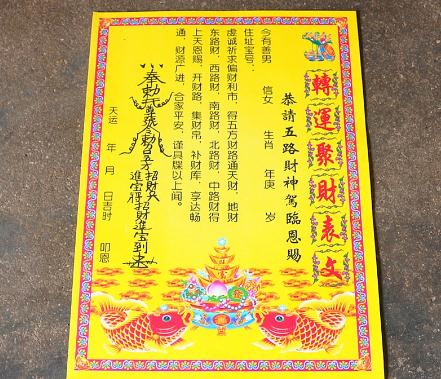 轉運聚財表文
恭請五路財神駕臨恩賜
今有善男 信女 生肖 年庚 岁
住址宝号：
虔诚祈求偏财利市，得五方财路通天财，地财
东路财，西路财，南路财，北路财，中路财得
上天恩赐，开财路，集财帛，补财库，享达畅
通，财源广进，合家平安，谨具牒以上闻。
奉勅
招財進寶到
天运 年 月 日吉时 叩恩